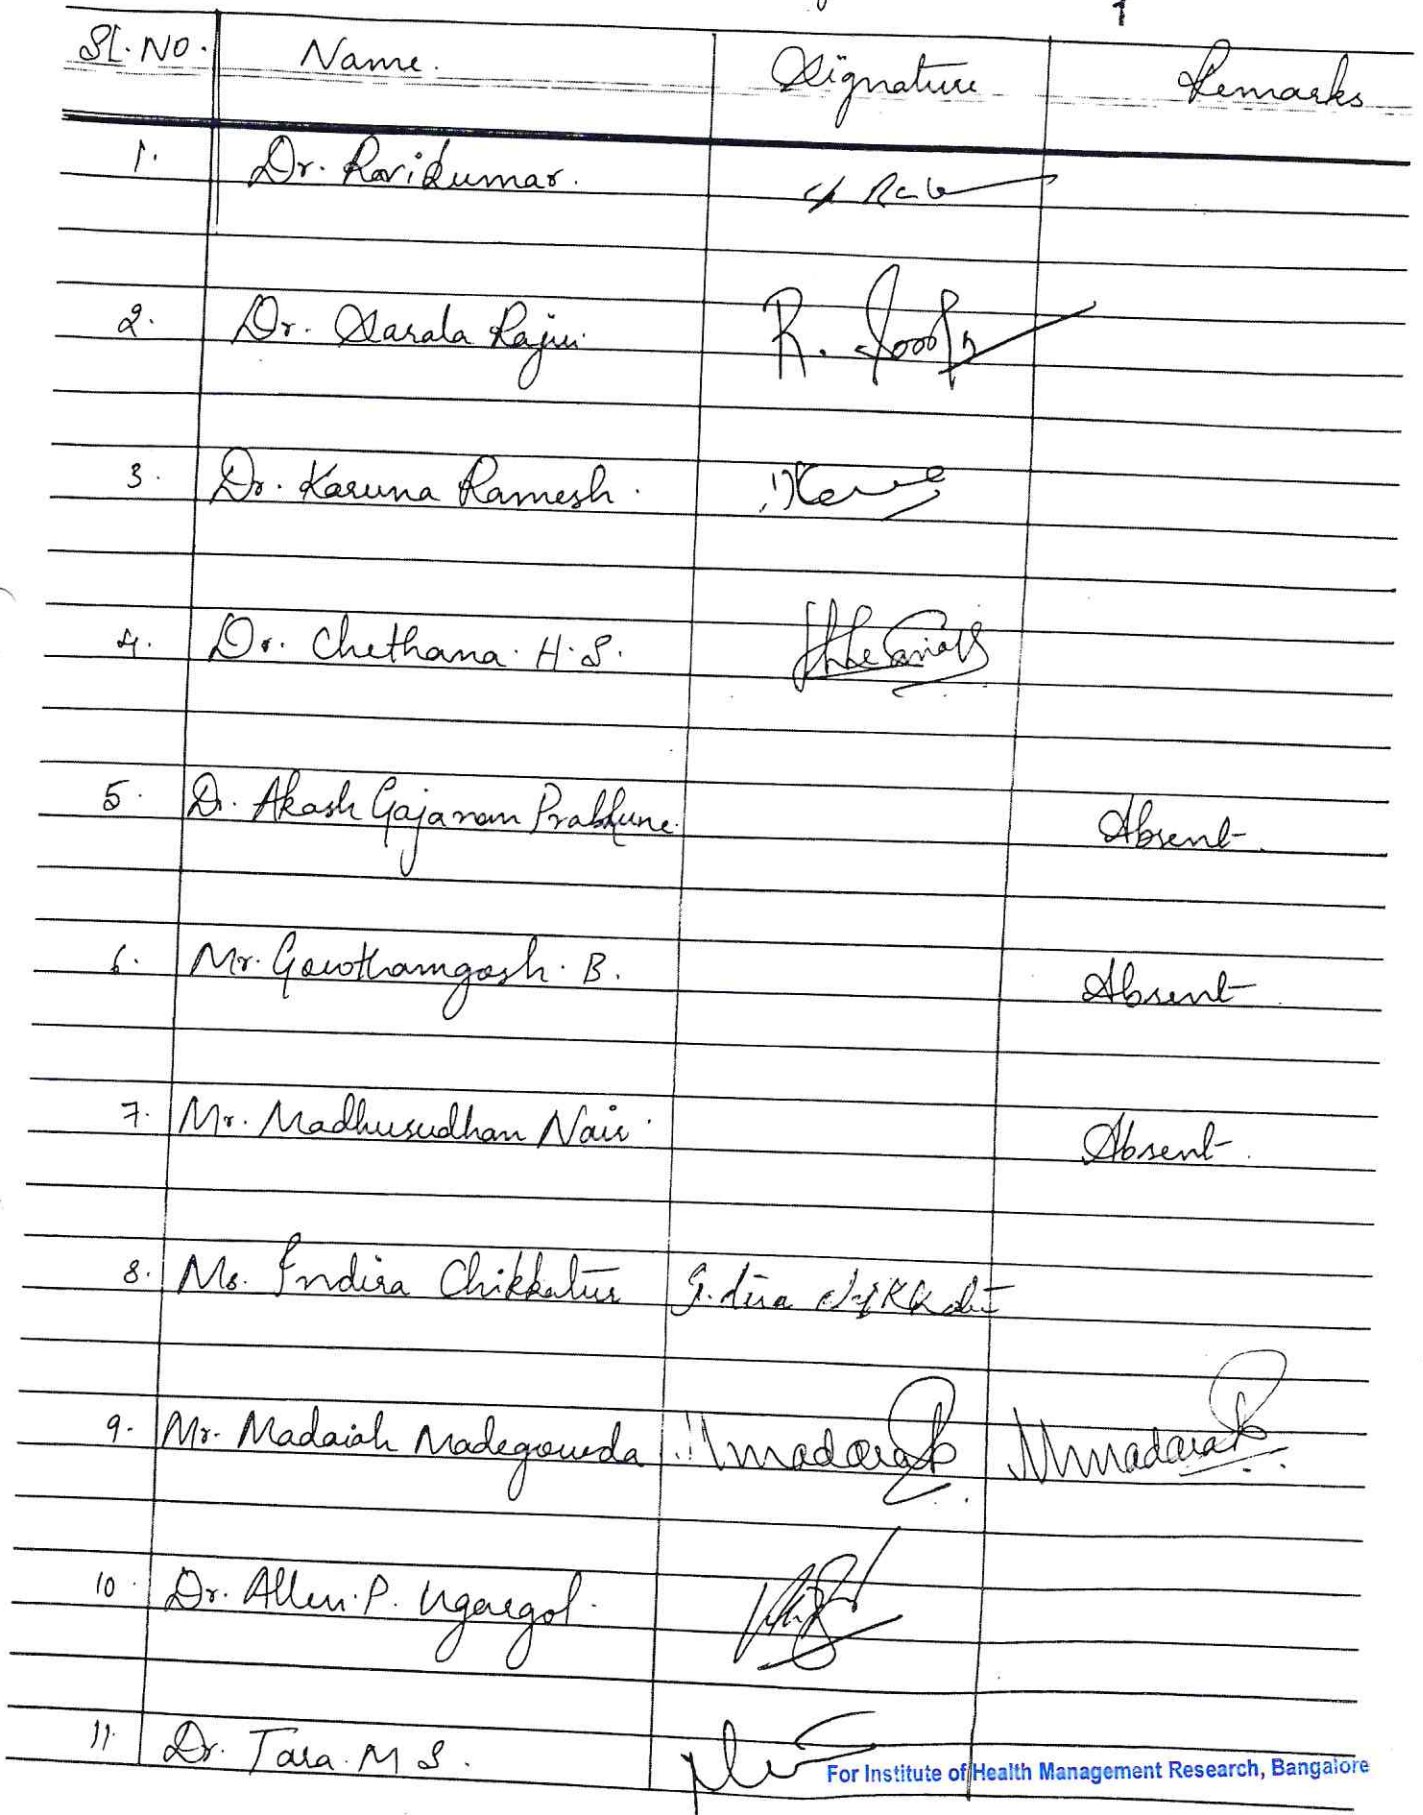 1
Sl. No. Name. Signature Remarks
1. Dr. Ravikumar.
2. Dr. Sarala Raju.
3. Dr. Karuna Ramesh.
4. Dr. Chethana. H. S.
5. Dr. Akash Gajanan Prabhune. Absent
6. Mr. Gowthamgosh. B. Absent
7. Mr. Madhusudhan Nair. Absent
8. Ms. Indira Chikkatur
9. Mr. Madaiah Madegowda
10. Dr. Allen. P. Ugargol.
11. Dr. Tara. M S.
For Institute of Health Management Research, Bangalore